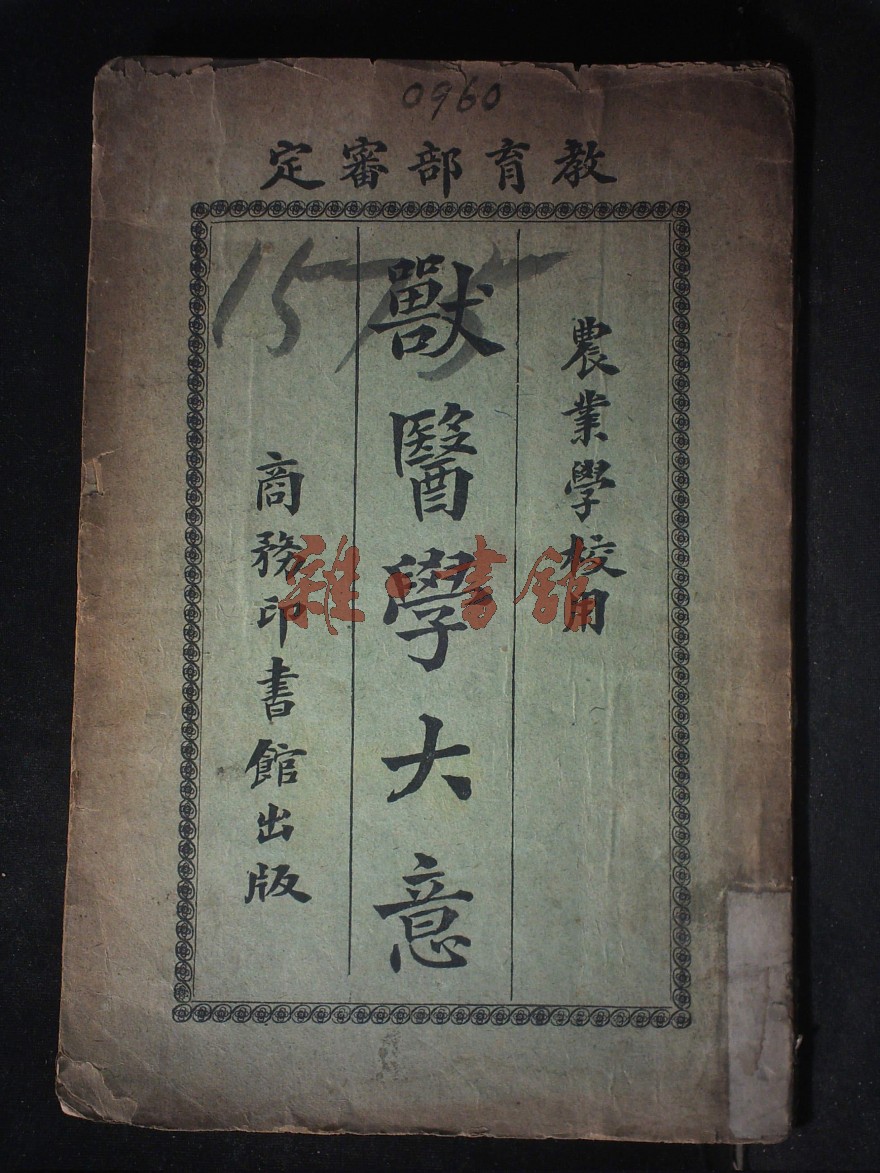 0960
教育部審定
農業學校用
獸醫學大意
商務印書館出版
1575
雜·書館